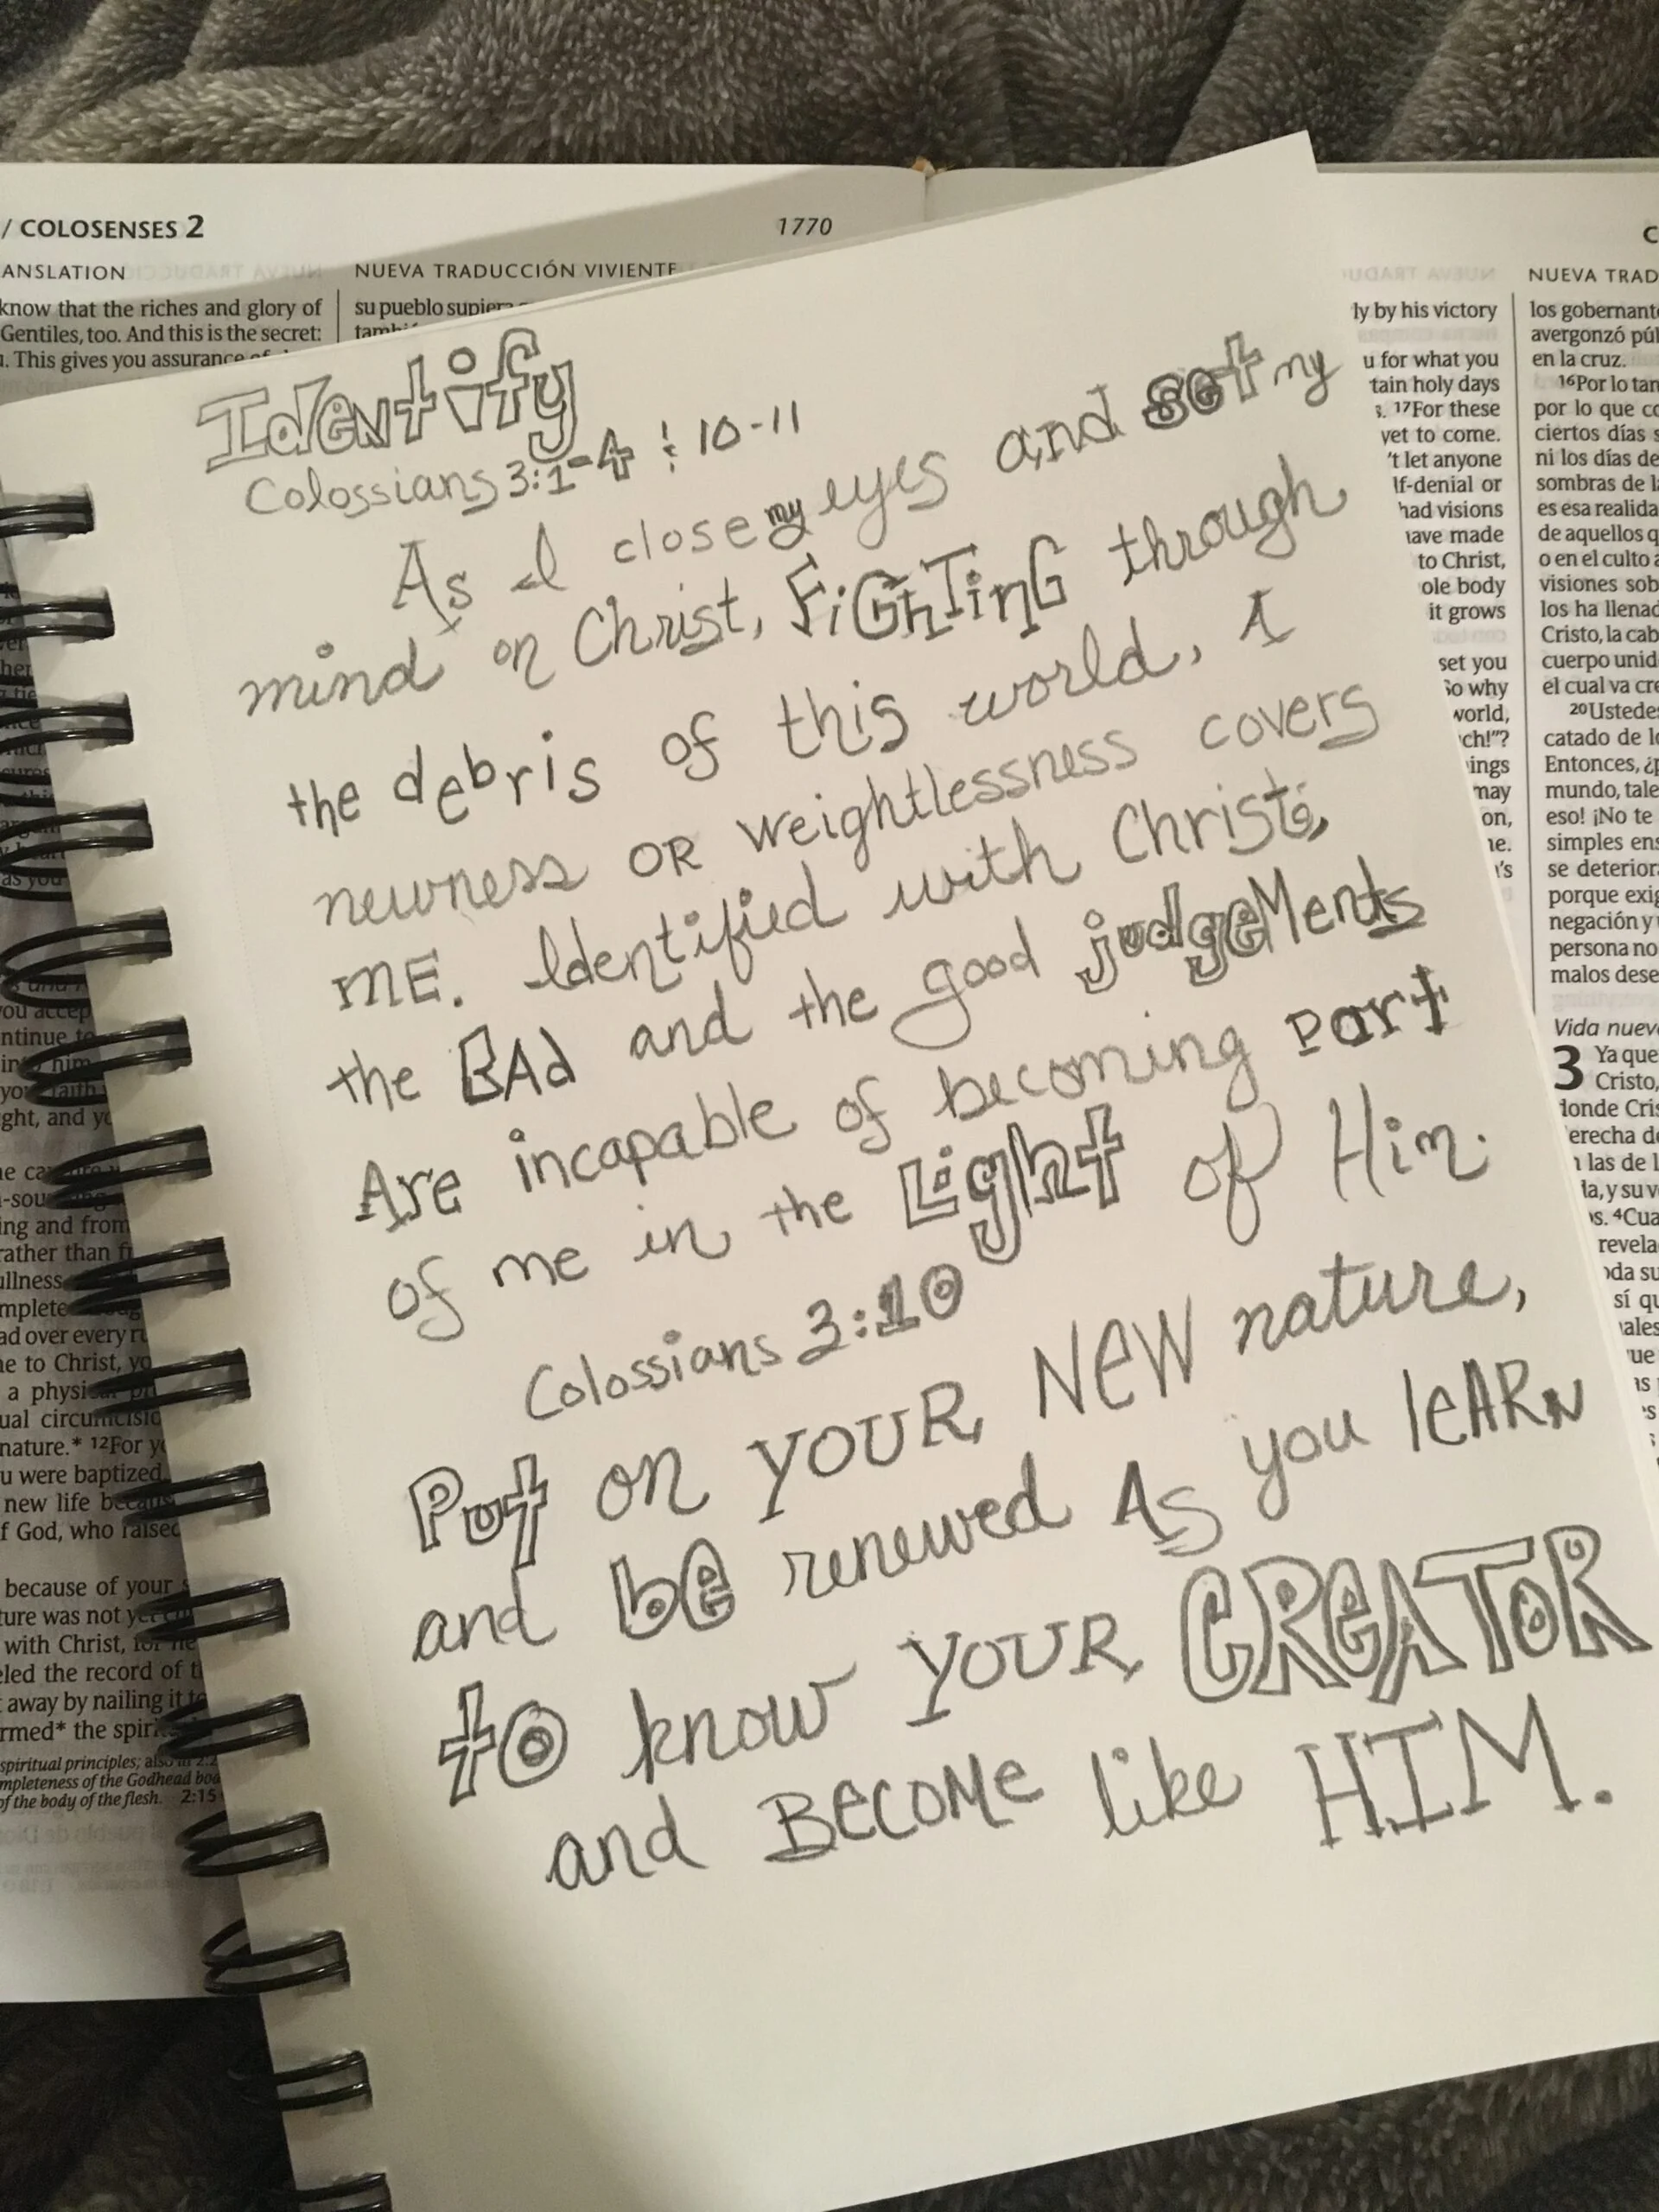 / COLOSENSES 2
1770
ANSLATION
NUEVA TRADUCCIÓN VIVIENTE
know that the riches and glory of
Gentiles, too. And this is the secret:
. This gives you assurance
su pueblo supiera
Identify
Colossians 3:1-4 ! 10-11
As I close my eyes and set my
mind on Christ, FiGhTinG through
the debris of this world, A
newness OR weightlessness covers
ME. Identified with Christ,
the BAd and the good judgeMents
Are incapable of becoming part
of me in the Light of Him.
Colossians 3:10
Put on YOUR NeW nature,
and be renewed As you leARN
to know YOUR CReATOR
and BecoMe like HIM.
ou accep
ntinue to
him
faith
ght, and yo
ing and from
rather than f
ullness
mplete
ad over every ru
e to Christ, yo
a physi
ual circumcisio
nature.* 12For yo
u were baptized
new life because
f God, who raised
because of your s
ture was not yet cu
with Christ, for he
eled the record of t
away by nailing it to
rmed* the spiri
spiritual principles; also in 2:2
mpleteness of the Godhead bod
of the body of the flesh. 2:15
C
NUEVA TRAD
ly by his victory
u for what you
tain holy days
s. 17For these
yet to come.
't let anyone
lf-denial or
had visions
ave made
to Christ,
ole body
it grows
set you
So why
world,
ch!"?
ings
may
on,
ne.
's
los gobernante
avergonzó púl
en la cruz.
16Por lo tan
por lo que co
ciertos días s
ni los días de
sombras de la
es esa realida
de aquellos q
o en el culto a
visiones sob
los ha llenad
Cristo, la cab
cuerpo unid
el cual va cre
20Ustedes
catado de lo
Entonces, ¿p
mundo, tale
eso! ¡No te
simples ens
se deteriora
porque exig
negación y
persona no
malos dese
Vida nuev
3 Ya que
Cristo,
donde Cris
erecha de
n las de l
da, y su v
os. 4Cua
revela
oda su
sí qu
ales
ue